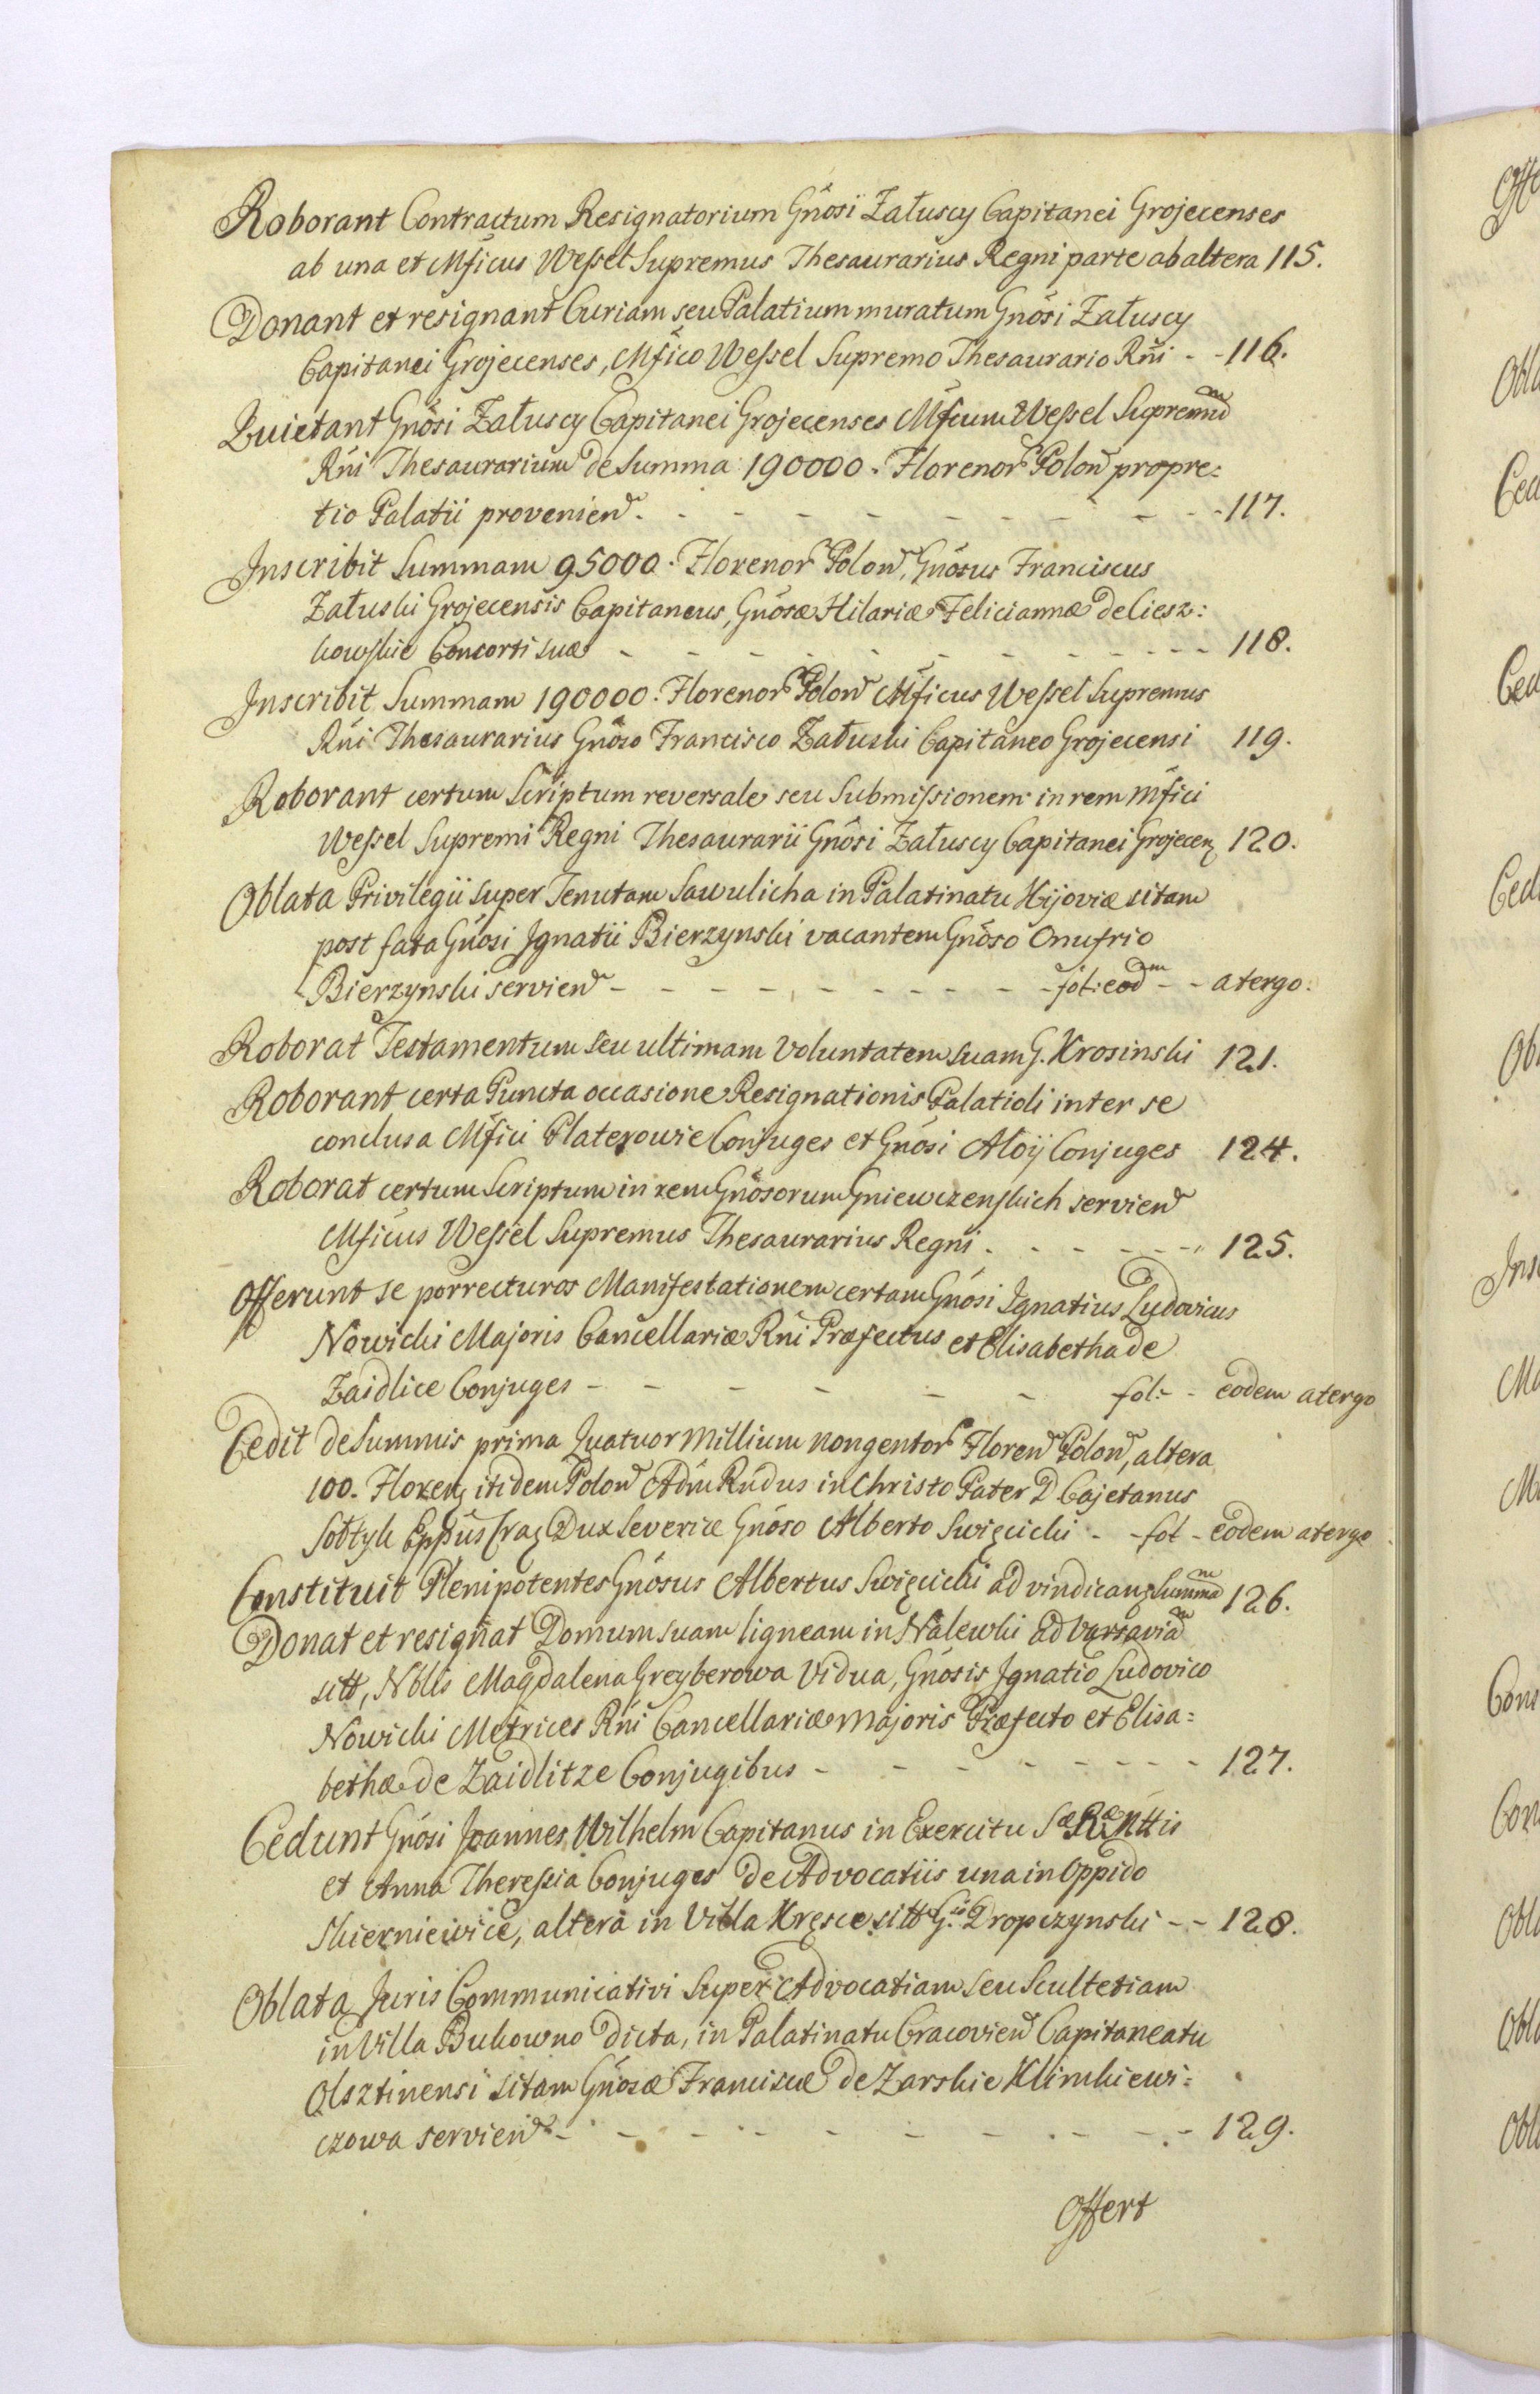 Roborant Contractum Resignatorium Gnosi Załuscy Capitanei Grojecenses
ab una et Mficus Wessel Supremus Thesaurarius Regni parte ab altera 115.
Donant et resignant Curiam seu Palatium muratum Gnosi Załuscy
Capitanei Grojecenses, Mfico Wessel Supremo Thesaurario Rni - - 116.
Quietant Gnosi Załuscy Capitanei Grojecenses Mficum Wessel Supremum
Rni Thesaurarium de Summa 190000. Florenor Polon propre=
tio Palatii provenien - - - - - - - - 117.
Inscribit Summam 95000. Florenor Polon, Gnosus Franciscus
Załuski Grojecensis Capitaneus, Gnosæ Hilariæ Feliciannæ de Ciesz:
kowskie Consorti suæ - - - - - - - - 118.
Inscribit Summam 190000. Florenor Polon Mficus Wessel Supremus
Rni Thesaurarius Gnoso Francisco Załuski Capitaneo Grojecensi 119.
Roborant certum Scriptum reversale seu Submissionem in rem Mfici
Wessel Supremi Regni Thesaurarii Gnosi Załuscy Capitanei Grojecen 120.
Oblata Privilegii super Tenutam Sawulicha in Palatinatu Kijoviæ sitam
post fata Gnosi Ignatii Bierzynski vacantem Gnoso Onufrio
Bierzynski servien - - - - - - - - fol: eodm - - atergo.
Roborat Testamentum seu ultimam Voluntatem suam G. Krosinski 121.
Roborant certa Puncta occasione Resignationis Palatioli inter se
conclusa Mfici Platerowie Conjuges et Gnosi Aloij Conjuges 124.
Roborat certum Scriptum in rem Gnosorum Gniewczenskich servien
Mficus Wessel Supremus Thesaurarius Regni - - - - - - 125.
Offerunt se porrecturos Manifestationem certam Gnosi Ignatius Ludovicus
Nowicki Majoris Cancellariæ Rni Præfectus et Elisabetha de
Zaidlice Conjuges - - - - - - fol: - eodem atergo
Cedit de Summis prima Quatuor Millium nongentor Floren Polon, altera
100. Floren itidem Polon Adm Rndus in Christo Pater D Cajetanus
Sołtyk Eppus Crac Dux Severiæ Gnoso Alberto Swięcicki - - fol - eodem atergo
Constituit Plenipotentes Gnosus Albertus Swięcicki ad vindican Summam 126.
Donat et resignat Domum suam ligneam in Nalewki ad Varsaviam
sitt, Nblis Magdalena Greyberowa Vidua, Gnosis Ignatio Ludovico
Nowicki Metrices Rni Cancellariæ Majoris Præfecto et Elisa=
bethæ de Zaidlitze Conjugibus - - - - - - - - 127.
Cedunt Gnosi Joannes Wilhelm Capitanus in Exercitu Sæ Ræ Mttis
et Anna Theressia Conjuges de Advocatiis una in Oppido
Skierniewice, altera in Villa Kręsce sitt G. Dropczynski - - 128.
Oblata Juris Communicativi Super Advocatiam seu Scultetiam
in Villa Bukowno dicta, in Palatinatu Cracovien Capitaneatu
Olsztinensi sitam Gnosæ Franciscæ de Zarskie Klimkiewi=
czowa servien - - - - - - - - 129.
Offert